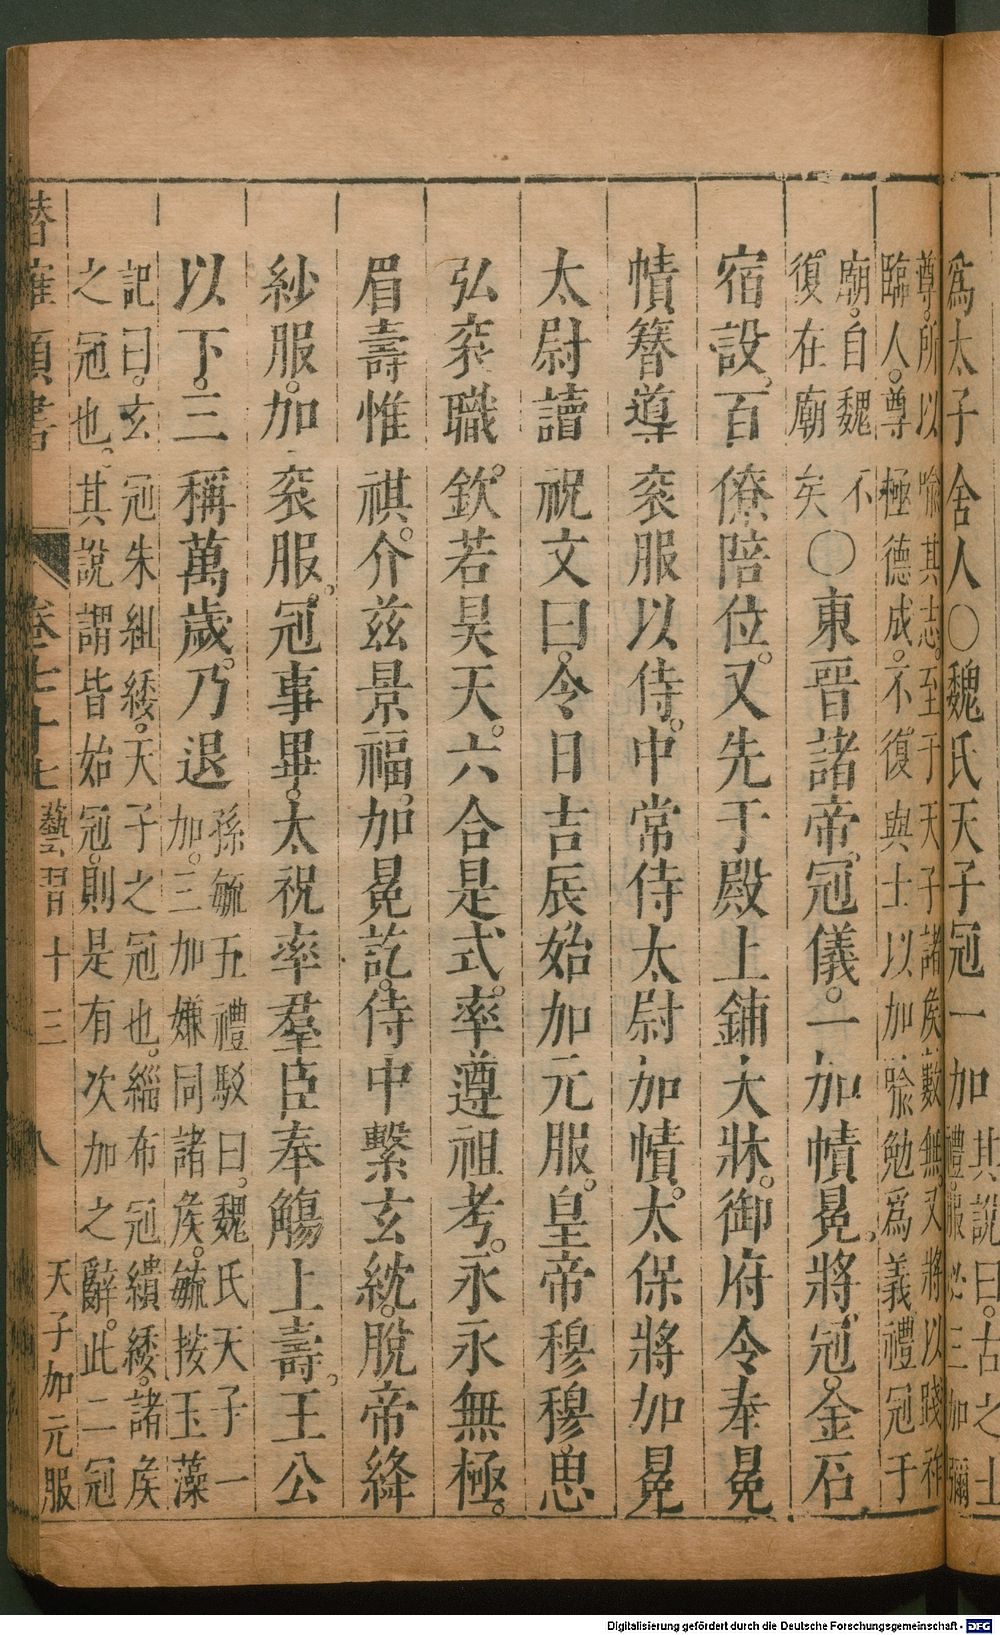 為太子舍人○魏氏天子冠一加
其說曰古之士
禮服必三加彌
尊所以喻其志至于天子諸侯數無又將以踐祚
臨人尊極德成不復與士以加喻勉為義禮冠于
廟自魏不
復在廟矣
○東晉諸帝冠儀。一加幘冕。將冠。金石
宿設。百僚陪位。又先于殿上鋪大牀。御府令奉冕
幘簪導袞服以侍。中常侍太尉加幘。太保將加冕
太尉讀祝文曰。令日吉辰始加元服。皇帝穆穆思
弘袞職。欽若昊天。六合是式。率遵祖考。永永無極。
眉壽惟祺。介兹景福。加冕訖。侍中繫玄紞。脫帝絳
紗服。加袞服。冠事畢。太祝率羣臣奉觴上壽。王公
以下。三稱萬歲。乃退
孫毓五禮駁曰。魏氏天子一
加。三加嫌同諸侯。毓按玉藻
記曰。玄冠朱組緌。天子之冠也。緇布冠繢緌。諸侯
之冠也。其說謂皆始冠。則是有次加之辭。此二冠
潛確類書 卷七十七 藝習十三 八 天子加元服
Digitalisierung gefördert durch die Deutsche Forschungsgemeinschaft - DFG